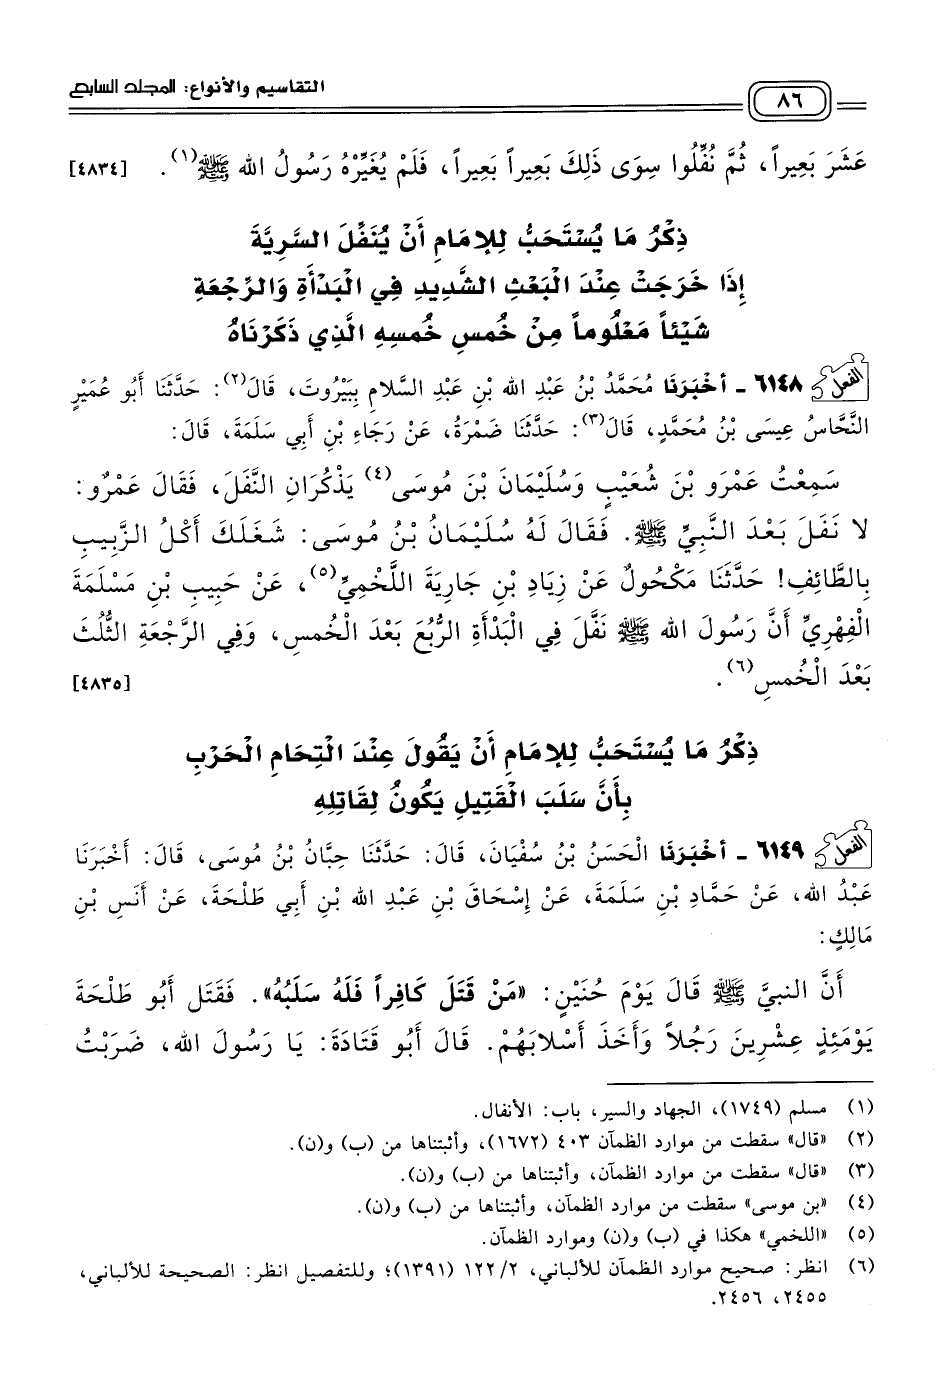 التقاسيم والأنواع: المجلد السابع
٨٦
عَشَرَ بَعِيراً، ثُمَّ نُفِّلُوا سِوَى ذَلِكَ بَعِيراً بَعِيراً، فَلَمْ يُغَيِّرْهُ رَسُولُ الله ﷺ(١). [٤٨٣٤]
ذِكْرُ مَا يُسْتَحَبُّ لِلإمَامِ أَنْ يُنَفِّلَ السَّرِيَّةَ
إِذَا خَرَجَتْ عِنْدَ الْبَعْثِ الشَّدِيدِ فِي الْبَدْأَةِ وَالرَّجْعَةِ
شَيْئاً مَعْلُوماً مِنْ خُمسِ خُمسِهِ الَّذِي ذَكَرْنَاهُ
الفعل ٦١٤٨ - أخْبَرَنَا مُحَمَّدُ بْنُ عَبْدِ الله بْنِ عَبْدِ السَّلَامِ بِبَيْرُوتَ، قَالَ(٢): حَدَّثَنَا أَبُو عُمَيْرٍ
النَّحَّاسُ عِيسَى بْنُ مُحَمَّدٍ، قَالَ(٣): حَدَّثَنَا ضَمْرَةُ، عَنْ رَجَاءِ بْنِ أَبِي سَلَمَةَ، قَالَ:
سَمِعْتُ عَمْرَو بْنَ شُعَيْبٍ وَسُلَيْمَانَ بْنَ مُوسَى(٤) يَذْكُرَانِ النَّفَلَ، فَقَالَ عَمْرٌو:
لا نَفَلَ بَعْدَ النَّبِيِّ ﷺ. فَقَالَ لَهُ سُلَيْمَانُ بْنُ مُوسَى: شَغَلَكَ أَكْلُ الزَّبِيبِ
بِالطَّائِفِ! حَدَّثَنَا مَكْحُولٌ عَنْ زِيَادِ بْنِ جَارِيَةَ اللَّخْمِيِّ(٥)، عَنْ حَبِيبِ بْنِ مَسْلَمَةَ
الْفِهْرِيِّ أَنَّ رَسُولَ الله ﷺ نَفَّلَ فِي الْبَدْأَةِ الرُّبُعَ بَعْدَ الْخُمسِ، وَفِي الرَّجْعَةِ الثُّلُثَ
بَعْدَ الْخُمسِ(٦). [٤٨٣٥]
ذِكْرُ مَا يُسْتَحَبُّ لِلإمَامِ أَنْ يَقُولَ عِنْدَ الْتِحَامِ الْحَرْبِ
بِأَنَّ سَلَبَ الْقَتِيلِ يَكُونُ لِقَاتِلِهِ
الفعل ٦١٤٩ - أخْبَرَنَا الْحَسَنُ بْنُ سُفْيَانَ، قَالَ: حَدَّثَنَا حِبَّانُ بْنُ مُوسَى، قَالَ: أَخْبَرَنَا
عَبْدُ الله، عَنْ حَمَّادِ بْنِ سَلَمَةَ، عَنْ إِسْحَاقَ بْنِ عَبْدِ الله بْنِ أَبِي طَلْحَةَ، عَنْ أَنَسِ بْنِ
مَالِكٍ:
أَنَّ النبيَّ ﷺ قَالَ يَوْمَ حُنَيْنٍ: «مَنْ قَتَلَ كَافِراً فَلَهُ سَلَبُهُ». فَقَتَل أَبُو طَلْحَةَ
يَوْمَئِذٍ عِشْرِينَ رَجُلاً وَأَخَذَ أَسْلابَهُمْ. قَالَ أَبُو قَتَادَةَ: يَا رَسُولَ الله، ضَرَبْتُ
(١) مسلم (١٧٤٩)، الجهاد والسير، باب: الأنفال.
(٢) «قال» سقطت من موارد الظمآن ٤٠٣ (١٦٧٢)، وأثبتناها من (ب) و(ن).
(٣) «قال» سقطت من موارد الظمآن، وأثبتناها من (ب) و(ن).
(٤) «بن موسى» سقطت من موارد الظمآن، وأثبتناها من (ب) و(ن).
(٥) «اللخمي» هكذا في (ب) و(ن) وموارد الظمآن.
(٦) انظر: صحيح موارد الظمآن للألباني، ٢/ ١٢٢ (١٣٩١)؛ وللتفصيل انظر: الصحيحة للألباني،
٢٤٥٥، ٢٤٥٦.